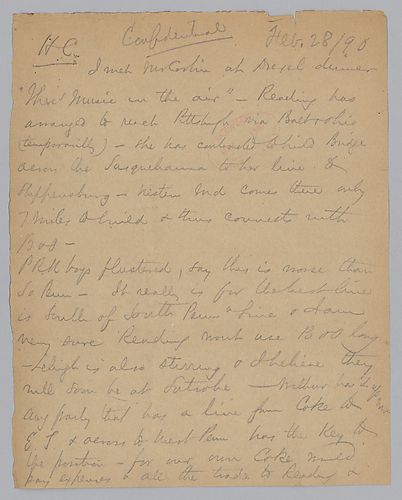 Confidential
H.C. Feb. 28/90
I met McCorkin at Drexel dinner
"There's Music in the air" – Reading has
arranged to reach Pittsburgh via Balto & Ohio
(temporarily) – She has contracted to build Bridge
across the Susquehanna to her line to
Shippensburg – Western Md comes there only
7 miles to build & thus connects with
B & O –
PRR boys flustered, say this is worse than
So Penn – It really is for the best line
is South of South Penn Line & I am
very sure Reading wont use B & O long
– Lehigh is also stirring & I believe they
will soon be at Latrobe – Wilbur has
Any party that has a line from Coke to
E.T. & across to West Penn has the Key to
the position – for our own Coke would
pay expenses & all the trade to Reading &